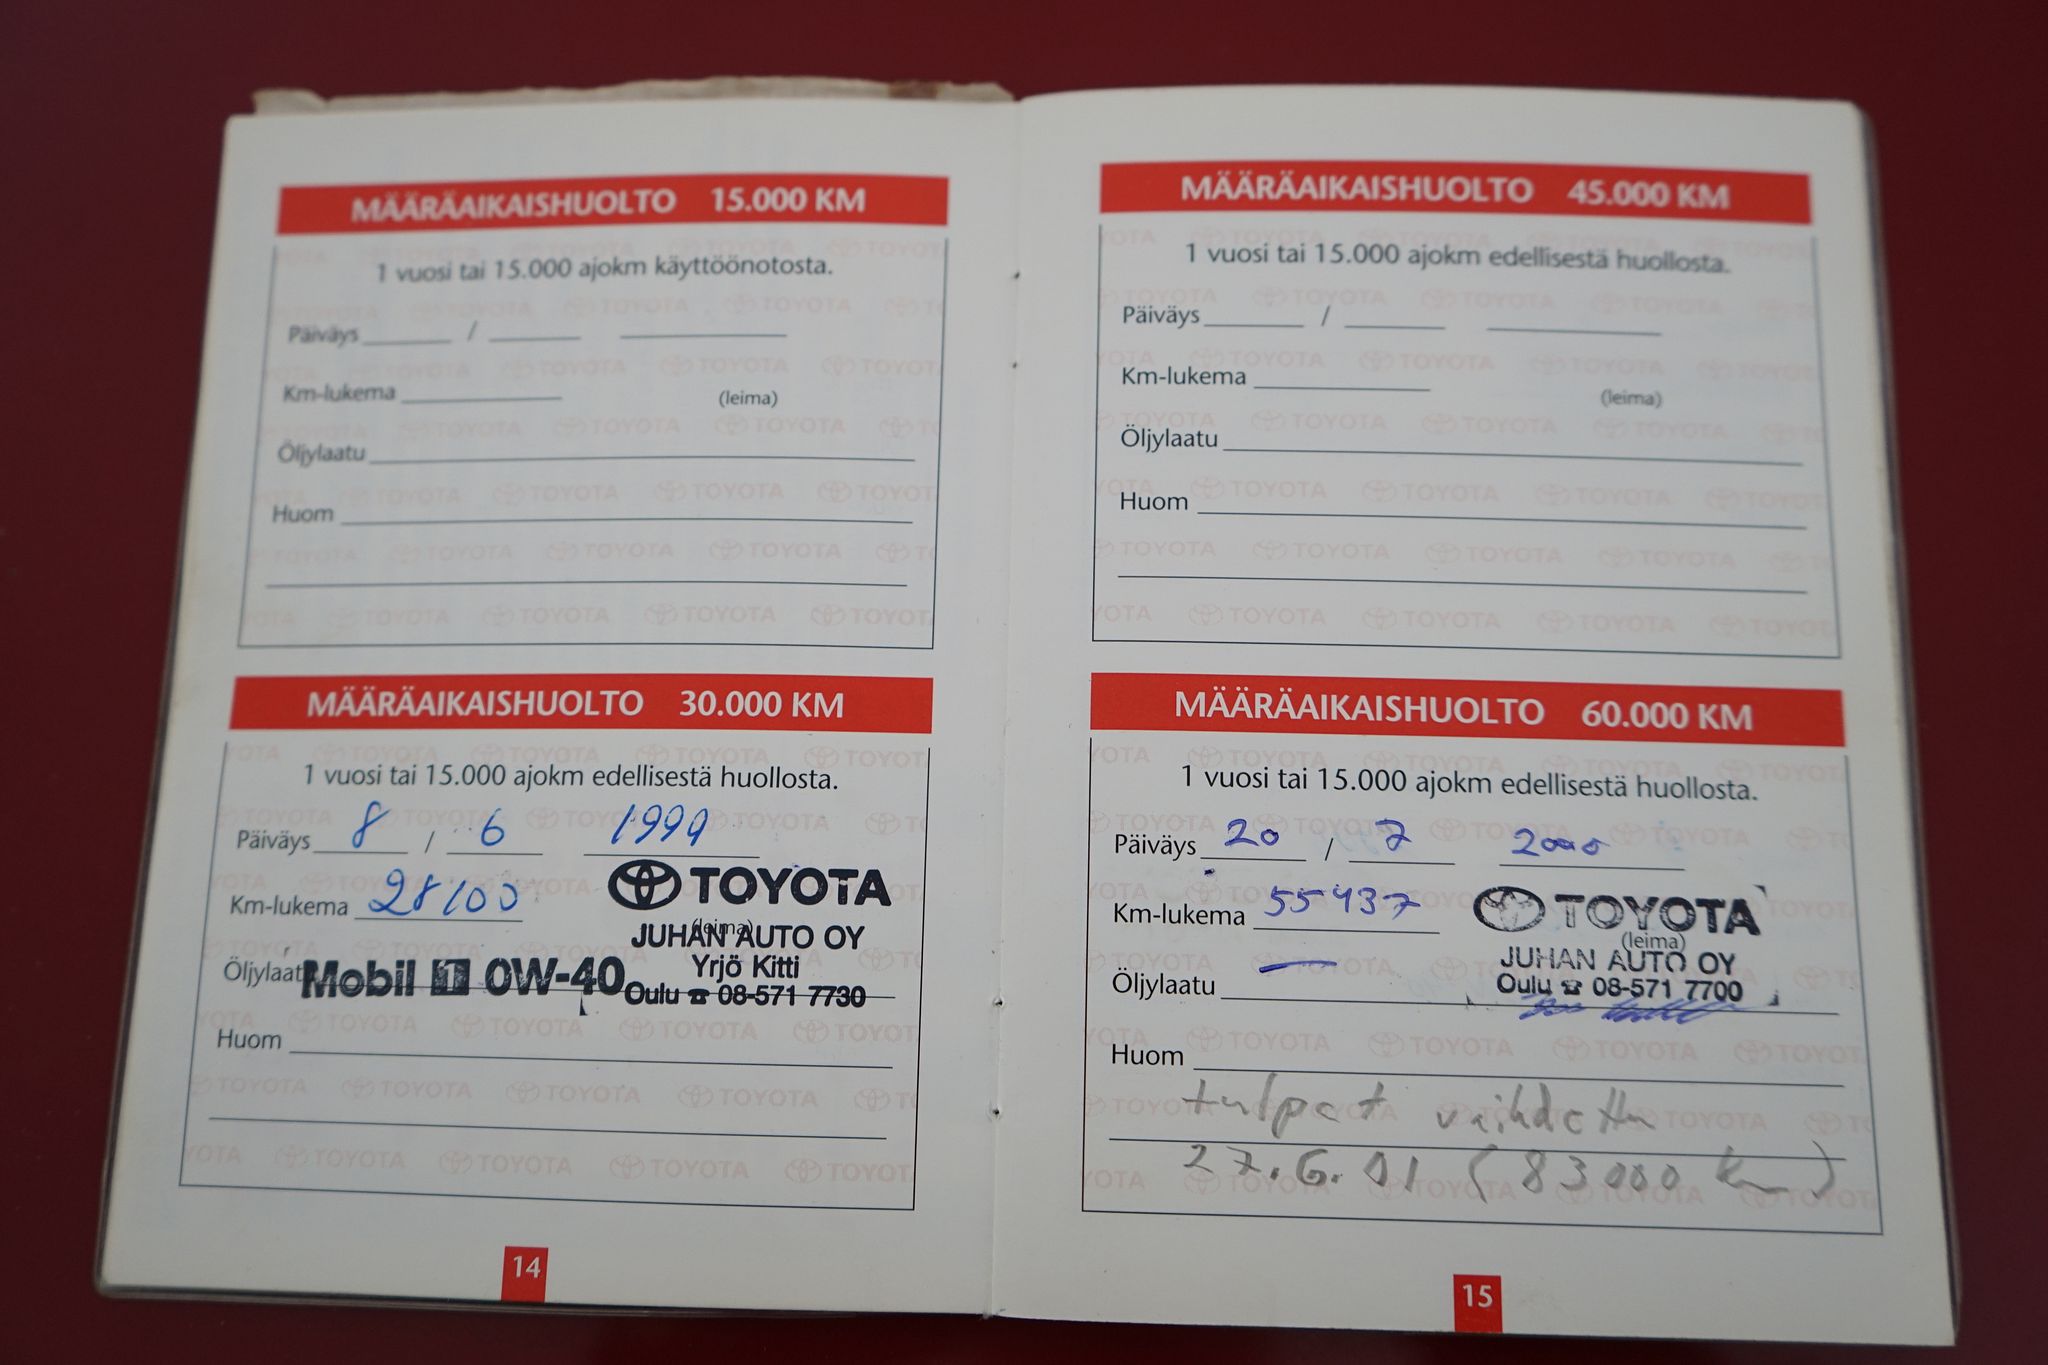 MÄÄRÄAIKAISHUOLTO 15.000 KM
1 vuosi tai 15.000 ajokm käyttöönotosta.
Päiväys /
Km-lukema
(leima)
Öljylaatu
Huom
MÄÄRÄAIKAISHUOLTO 30.000 KM
1 vuosi tai 15.000 ajokm edellisestä huollosta.
Päiväys 8 / 6 1999
Km-lukema 28100
TOYOTA
(leima)
JUHAN AUTO OY
Yrjö Kitti
Öljylaatu Mobil 1 0W-40
Oulu ☎ 08-571 7730
Huom
14
MÄÄRÄAIKAISHUOLTO 45.000 KM
1 vuosi tai 15.000 ajokm edellisestä huollosta.
Päiväys /
Km-lukema
(leima)
Öljylaatu
Huom
MÄÄRÄAIKAISHUOLTO 60.000 KM
1 vuosi tai 15.000 ajokm edellisestä huollosta.
Päiväys 20 / 7 2000
Km-lukema 55437
TOYOTA
(leima)
JUHAN AUTO OY
Öljylaatu
Oulu ☎ 08-571 7700
Huom
tulpat vaihdettu
27.6.01 (83000 km)
15